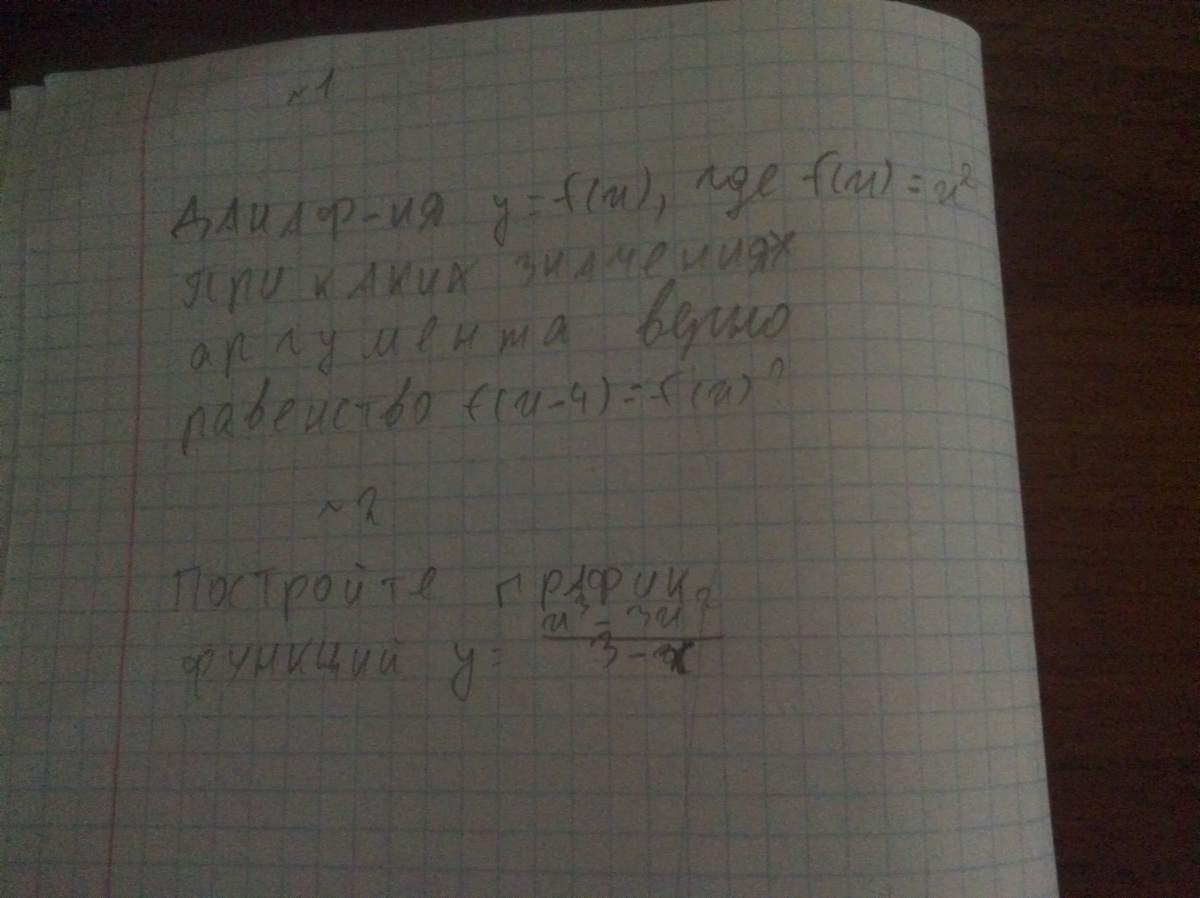 ~1
Дана ф-ия y=f(x), где f(x)=x²
При каких значениях
аргумента верно
равенство f(x-4)=f(x)?
~2
Постройте график
функций y= (x³-3x²)/(3-x)